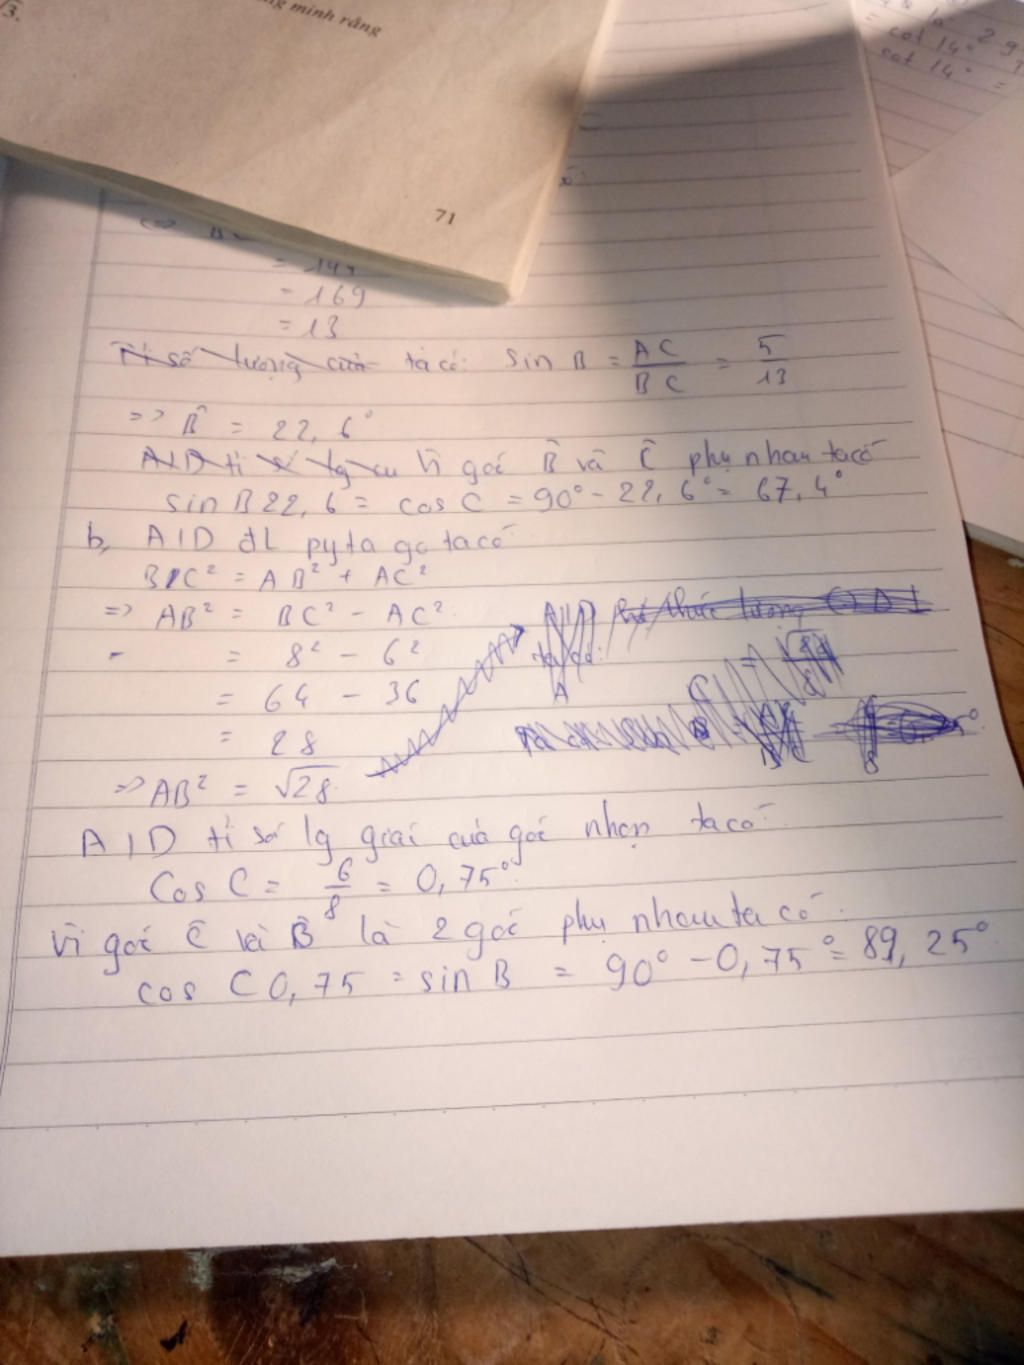 √3.
minh rằng
71
là 2 g
cot 14°
cot 14° =
= 169
= 13
Tỉ số lượng của ta có: sin B = AC/BC = 5/13
=> B̂ = 22,6°
Vì góc B̂ và Ĉ phụ nhau ta có
sin B 22,6 = cos C = 90° - 22,6° = 67,4°
b, AID đL pytago ta có
BC² = AB² + AC²
=> AB² = BC² - AC²
= 8² - 6²
= 64 - 36
= 28
=> AB² = √28
AID tỉ số lg giác của góc nhọn ta có
Cos C = 6/8 = 0,75°
Vì góc Ĉ và B̂ là 2 góc phụ nhau ta có.
cos C 0,75 = sin B = 90° - 0,75° = 89,25°